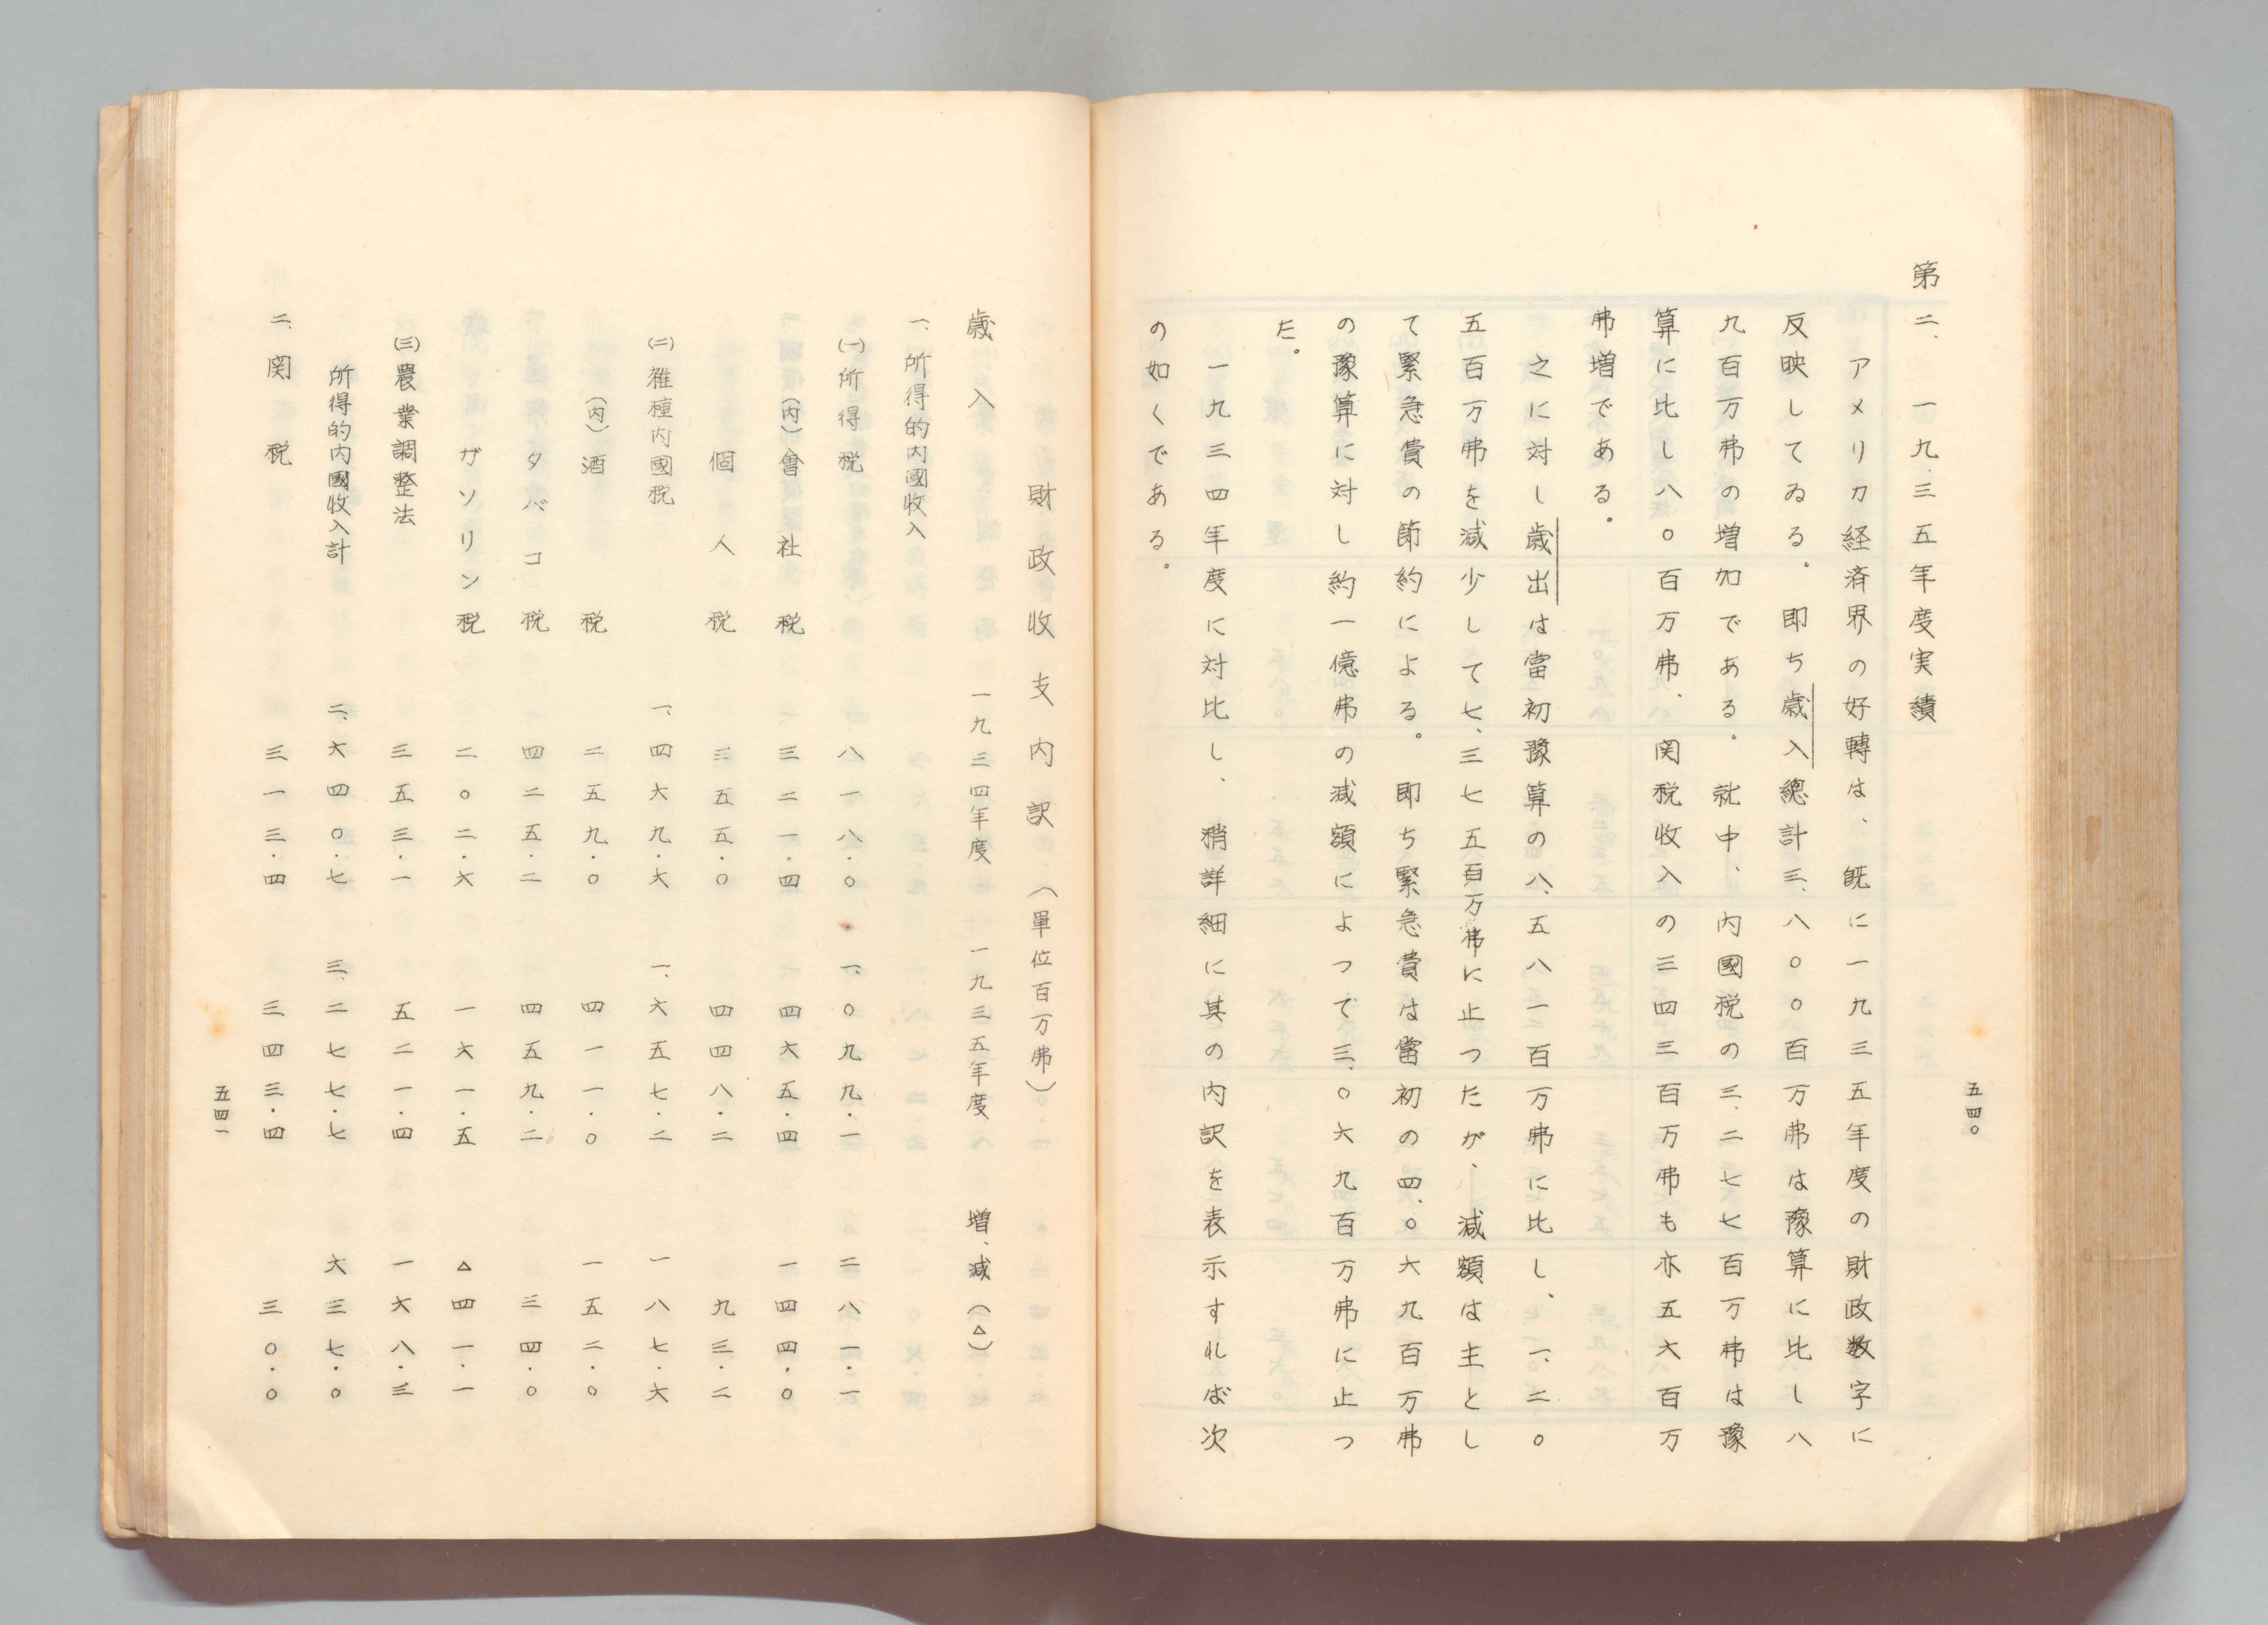 五四〇
第二、一九三五年度実績
アメリカ経済界の好轉は、既に一九三五年度の財政数字に
反映してゐる。即ち歳入總計三、八〇〇百万弗は豫算に比し八
九百万弗の増加である。就中、内國税の三、二七七百万弗は豫
算に比し八〇百万弗、関税收入の三四三百万弗も亦五六百万
弗増である。
之に対し歳出は當初豫算の八、五八一百万弗に比し、一、二〇
五百万弗を減少して七、三七五百万弗に止つたが、減額は主とし
て緊急費の節約による。即ち緊急費は當初の四、〇六九百万弗
の豫算に対し約一億弗の減額によつて三、〇六九百万弗に止つ
た。
一九三四年度に対比し、稍詳細に其の内訳を表示すれば次
の如くである。
財政收支内訳（單位百万弗）
歳入 一九三四年度 一九三五年度 増、減（△）
一、所得的内國收入
(一)所得税 八一八・〇 一、〇九九・一 二八一・一
(内)會社税 三二一・四 四六五・四 一四四・〇
個人税 三五五・〇 四四八・二 九三・二
(二)雑種内國税 一、四六九・六 一、六五七・二 一八七・六
(内)酒税 二五九・〇 四一一・〇 一五二・〇
タバコ税 四二五・二 四五九・二 三四・〇
ガソリン税 二〇二・六 一六一・五 △四一・一
(三)農業調整法 三五三・一 五二一・四 一六八・三
所得的内國收入計 二、六四〇・七 三、二七七・七 六三七・〇
二、関税 三一三・四 三四三・四 三〇・〇
五四一